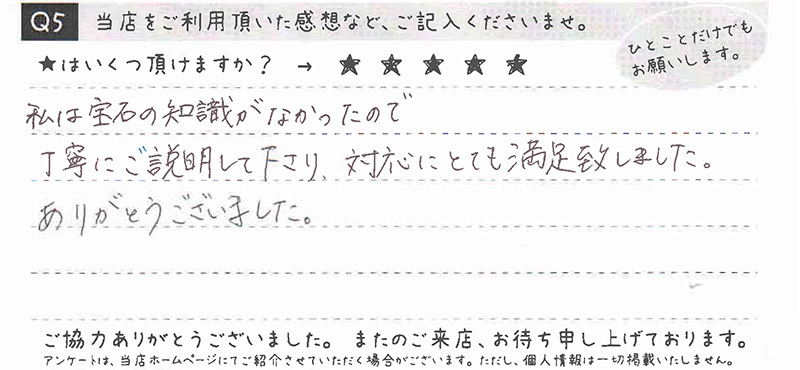 Q5 当店をご利用頂いた感想など、ご記入くださいませ。
ひとことだけでも
お願いします。
★はいくつ頂けますか? → ★ ★ ★ ★ ★
私は宝石の知識がなかったので
丁寧にご説明して下さり、対応にとても満足致しました。
ありがとうございました。
ご協力ありがとうございました。 またのご来店、お待ち申し上げております。
アンケートは、当店ホームページにてご紹介させていただく場合がございます。ただし、個人情報は一切掲載いたしません。